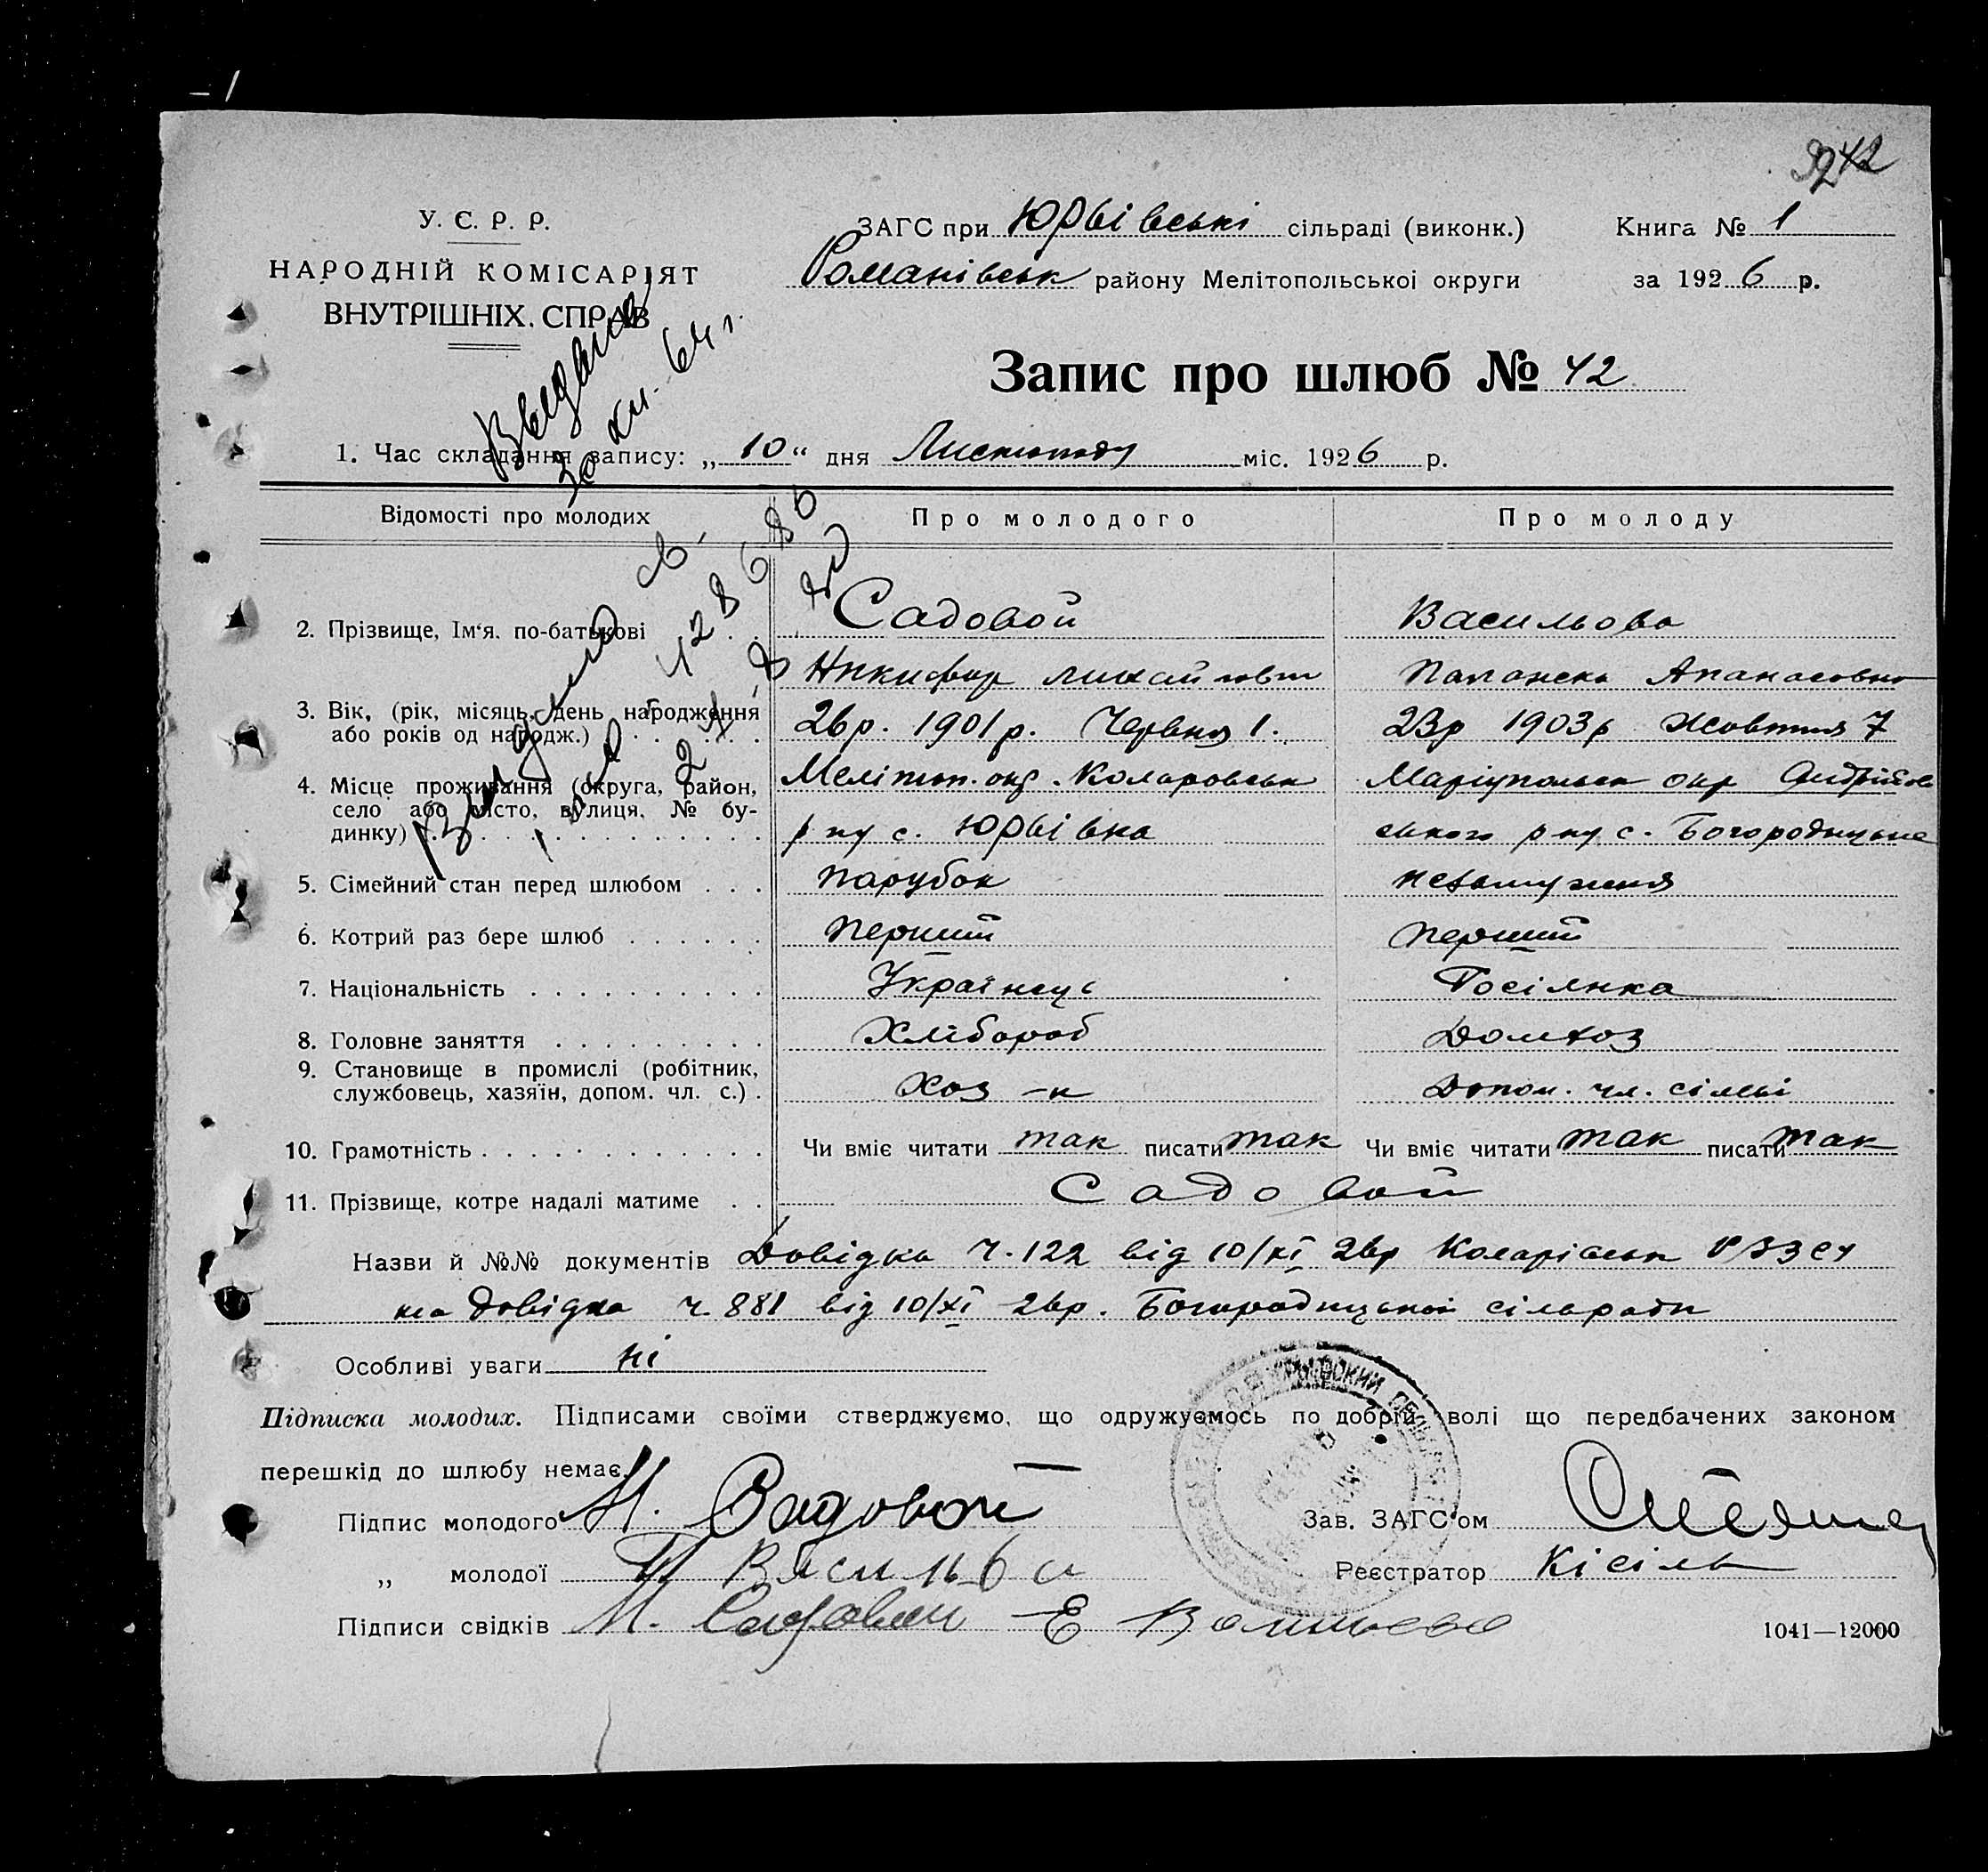 У. Є. Р. Р.
НАРОДНІЙ КОМІСАРІЯТ
ВНУТРІШНІХ. СПРАВ
ЗАГС при Юрьівські сільраді (виконк.)
Романівськ району Мелітопольської округи
Книга № 1
за 1926 р.
Запис про шлюб № 42
1. Час складання запису: „10“ дня Листопаду міс. 1926 р.
Выдано
30 XII. 64 г.
Відомості про молодих
Про молодого
Про молоду
2. Прізвище, Ім‘я. по-батькові . .
Садовой
Васильова
Никифор Михайлович
Апанасовна
3. Вік, (рік, місяць, день народження
або років од народж.) . . . . .
26р. 1901 р. Червня 1.
23р 1903р Жовтня 7
4. Місце проживання (округа, район,
село або місто, вулиця, № бу-
динку) . . . . . . . . . .
Мелітоп. окр. Коларовськ
р ну с. Юрьівка
Маріупольск окр Андрійов
ського р ну с. Богородицьке
5. Сімейний стан перед шлюбом . . .
парубок
незамужня
6. Котрий раз бере шлюб . . . . . .
перший
перший
7. Національність . . . . . . . . . .
Українець
Росіянка
8. Головне заняття . . . . . . . . .
Хлібороб
Домхоз
9. Становище в промислі (робітник,
службовець, хазяїн, допом. чл. с.) .
Хоз-н
Допом. чл. сімьі
10. Грамотність . . . . . . . . . . . .
Чи вміє читати так писати так
Чи вміє читати так писати так
11. Прізвище, котре надалі матиме . .
Садовой
Назви й №№ документів Довідка ч. 122 від 10/XI 26р Коларівськ
та довідка ч. 881 від 10/XI 26р. Богородицькой сільради
Особливі уваги ні
Підписка молодих. Підписами своїми стверджуємо, що одружуємось по добрій волі що передбачених законом
перешкід до шлюбу немає.
Підпис молодого Н. Садовой
Зав. ЗАГС‘ом
„ молодої П Васильва
Реєстратор Кісіль
Підписи свідків М. Садовой Е
1041—12000